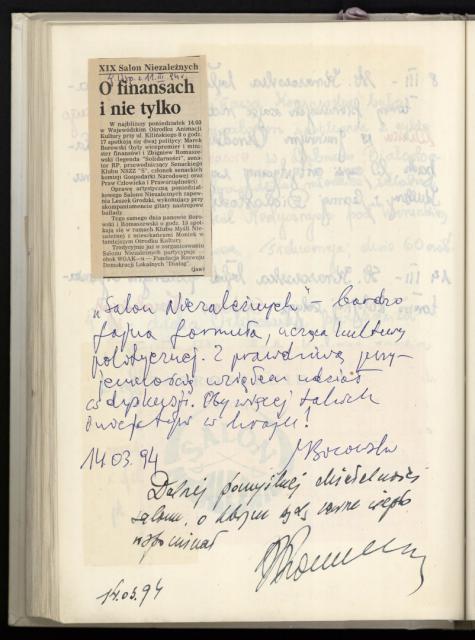 XIX Salon Niezależnych
z 11.III.94 r.
O finansach
i nie tylko
W najbliższy poniedziałek 14.03
w Wojewódzkim Ośrodku Animacji
Kultury przy ul. Kilińskiego 8 o godz.
17 spotkają się dwaj politycy Marek
Borowski (były wicepremier i mini-
ster finansów) i Zbigniew Romaszew-
ski (legenda "Solidarności", sena-
tor RP, przewodniczący Senackiego
Klubu NSZZ "S", członek senackich
komisji Gospodarki Narodowej oraz
Praw Człowieka i Praworządności).
Oprawę artystyczną poniedział-
kowego Salonu Niezależnych zapew-
nia Leszek Grodzki, wykonujący przy
akompaniamencie gitary nastrojowe
ballady.
Tego samego dnia panowie Borow-
ski i Romaszewski o godz. 13 spot-
kają się w ramach Klubu Myśli Nie-
zależnej z mieszkańcami Moniek w
tamtejszym Ośrodku Kultury.
Tradycyjnie już w organizowaniu
Salonu Niezależnych partycypuje
obok WOAK-u — Fundacja Rozwoju
Demokracji Lokalnych "Dialog".
"Salon Niezależnych" – bardzo
fajna formuła, ucząca kultury
politycznej. Z prawdziwą przy-
jemnością wziąłem udział
w dyskusji. Oby więcej takich
w kraju!
14.03.94 MBorowski
Dalszej pomyślnej działalności
salonu, o którym będę zawsze ciepło
wspominał
14.03.94
SALON